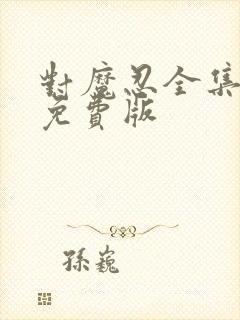 對魔忍全集
免費版
孫巍